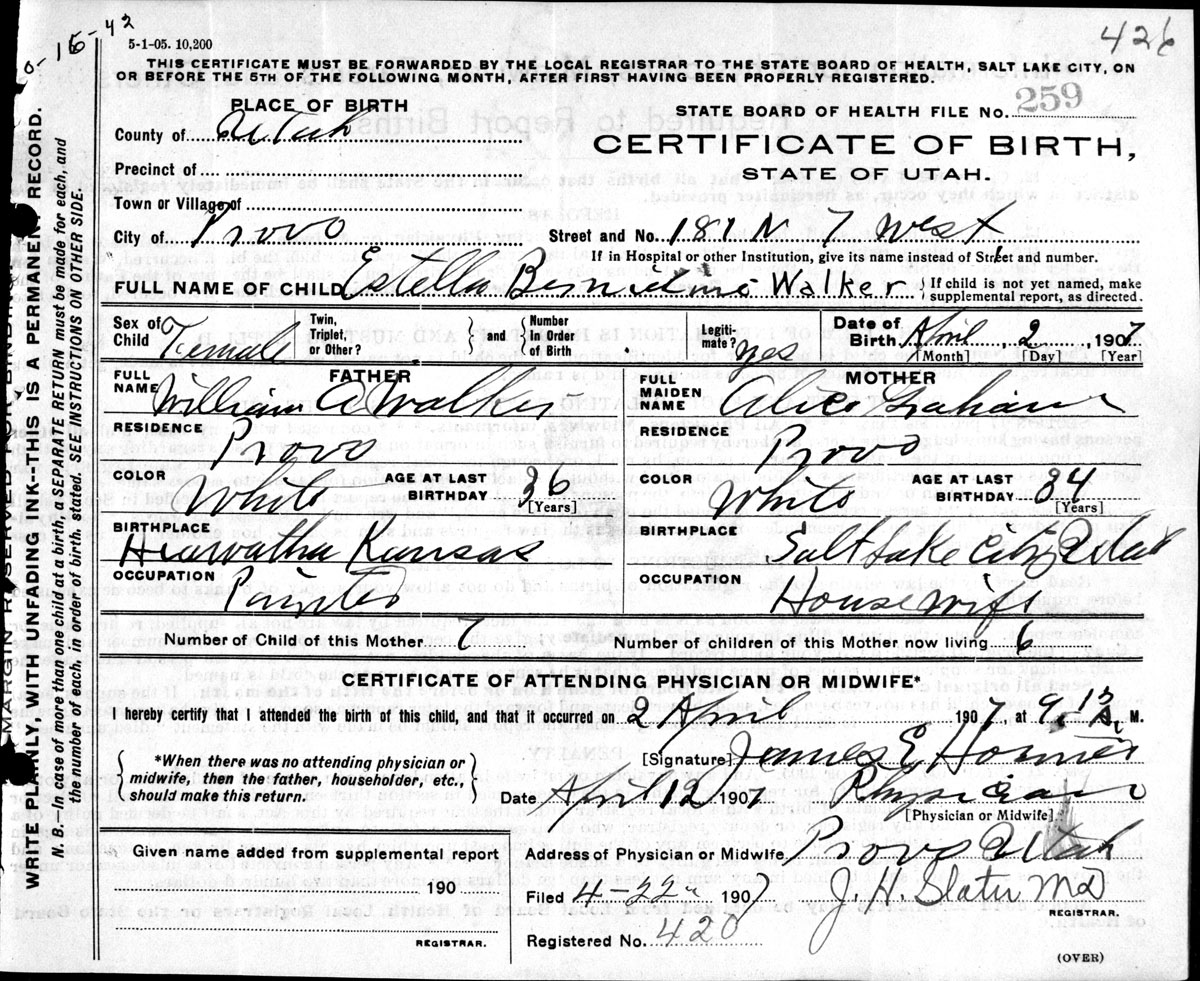 15-42
5-1-05. 10,200
426
THIS CERTIFICATE MUST BE FORWARDED BY THE LOCAL REGISTRAR TO THE STATE BOARD OF HEALTH, SALT LAKE CITY, ON
OR BEFORE THE 5TH OF THE FOLLOWING MONTH, AFTER FIRST HAVING BEEN PROPERLY REGISTERED.
PLACE OF BIRTH
STATE BOARD OF HEALTH FILE No. 259
County of Utah
CERTIFICATE OF BIRTH,
STATE OF UTAH.
Precinct of
Town or Village of
City of Provo Street and No. 181 N 7 West
If in Hospital or other Institution, give its name instead of Street and number.
FULL NAME OF CHILD Estella Bernadine Walker { If child is not yet named, make
supplemental report, as directed.
Sex of Child Female
Twin, Triplet, or Other? } and { Number in Order of Birth
Legitimate? yes
Date of Birth April 2 1907
[Month] [Day] [Year]
FATHER
FULL NAME William A Walker
MOTHER
FULL MAIDEN NAME Alice Graham
RESIDENCE Provo
RESIDENCE Provo
COLOR White AGE AT LAST BIRTHDAY 36 [Years]
COLOR White AGE AT LAST BIRTHDAY 34 [Years]
BIRTHPLACE Hiawatha Kansas
BIRTHPLACE Salt Lake City Utah
OCCUPATION Painter
OCCUPATION Housewife
Number of Child of this Mother 7 Number of children of this Mother now living 6
CERTIFICATE OF ATTENDING PHYSICIAN OR MIDWIFE*
I hereby certify that I attended the birth of this child, and that it occurred on 2 April 1907, at 9.12 A, M.
*When there was no attending physician or
midwife, then the father, householder, etc.,
should make this return.
[Signature] James E Horner
Date April 12 1907 Physician
[Physician or Midwife]
Given name added from supplemental report
190
REGISTRAR.
Address of Physician or Midwife Provo Utah
Filed 4-22 1907 J. H. Slater MD
REGISTRAR.
Registered No. 420
(OVER)
MARGIN RESERVED FOR BINDING.
WRITE PLAINLY, WITH UNFADING INK--THIS IS A PERMANENT RECORD.
N. B. In case of more than one child at a birth, a SEPARATE RETURN must be made for each, and
the number of each, in order of birth, stated. SEE INSTRUCTIONS ON OTHER SIDE.